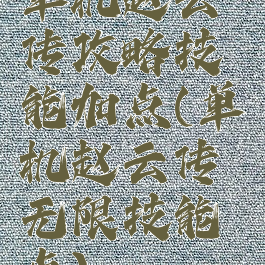 单机赵云
传攻略技
能加点(单
机赵云传
无限技能
点)